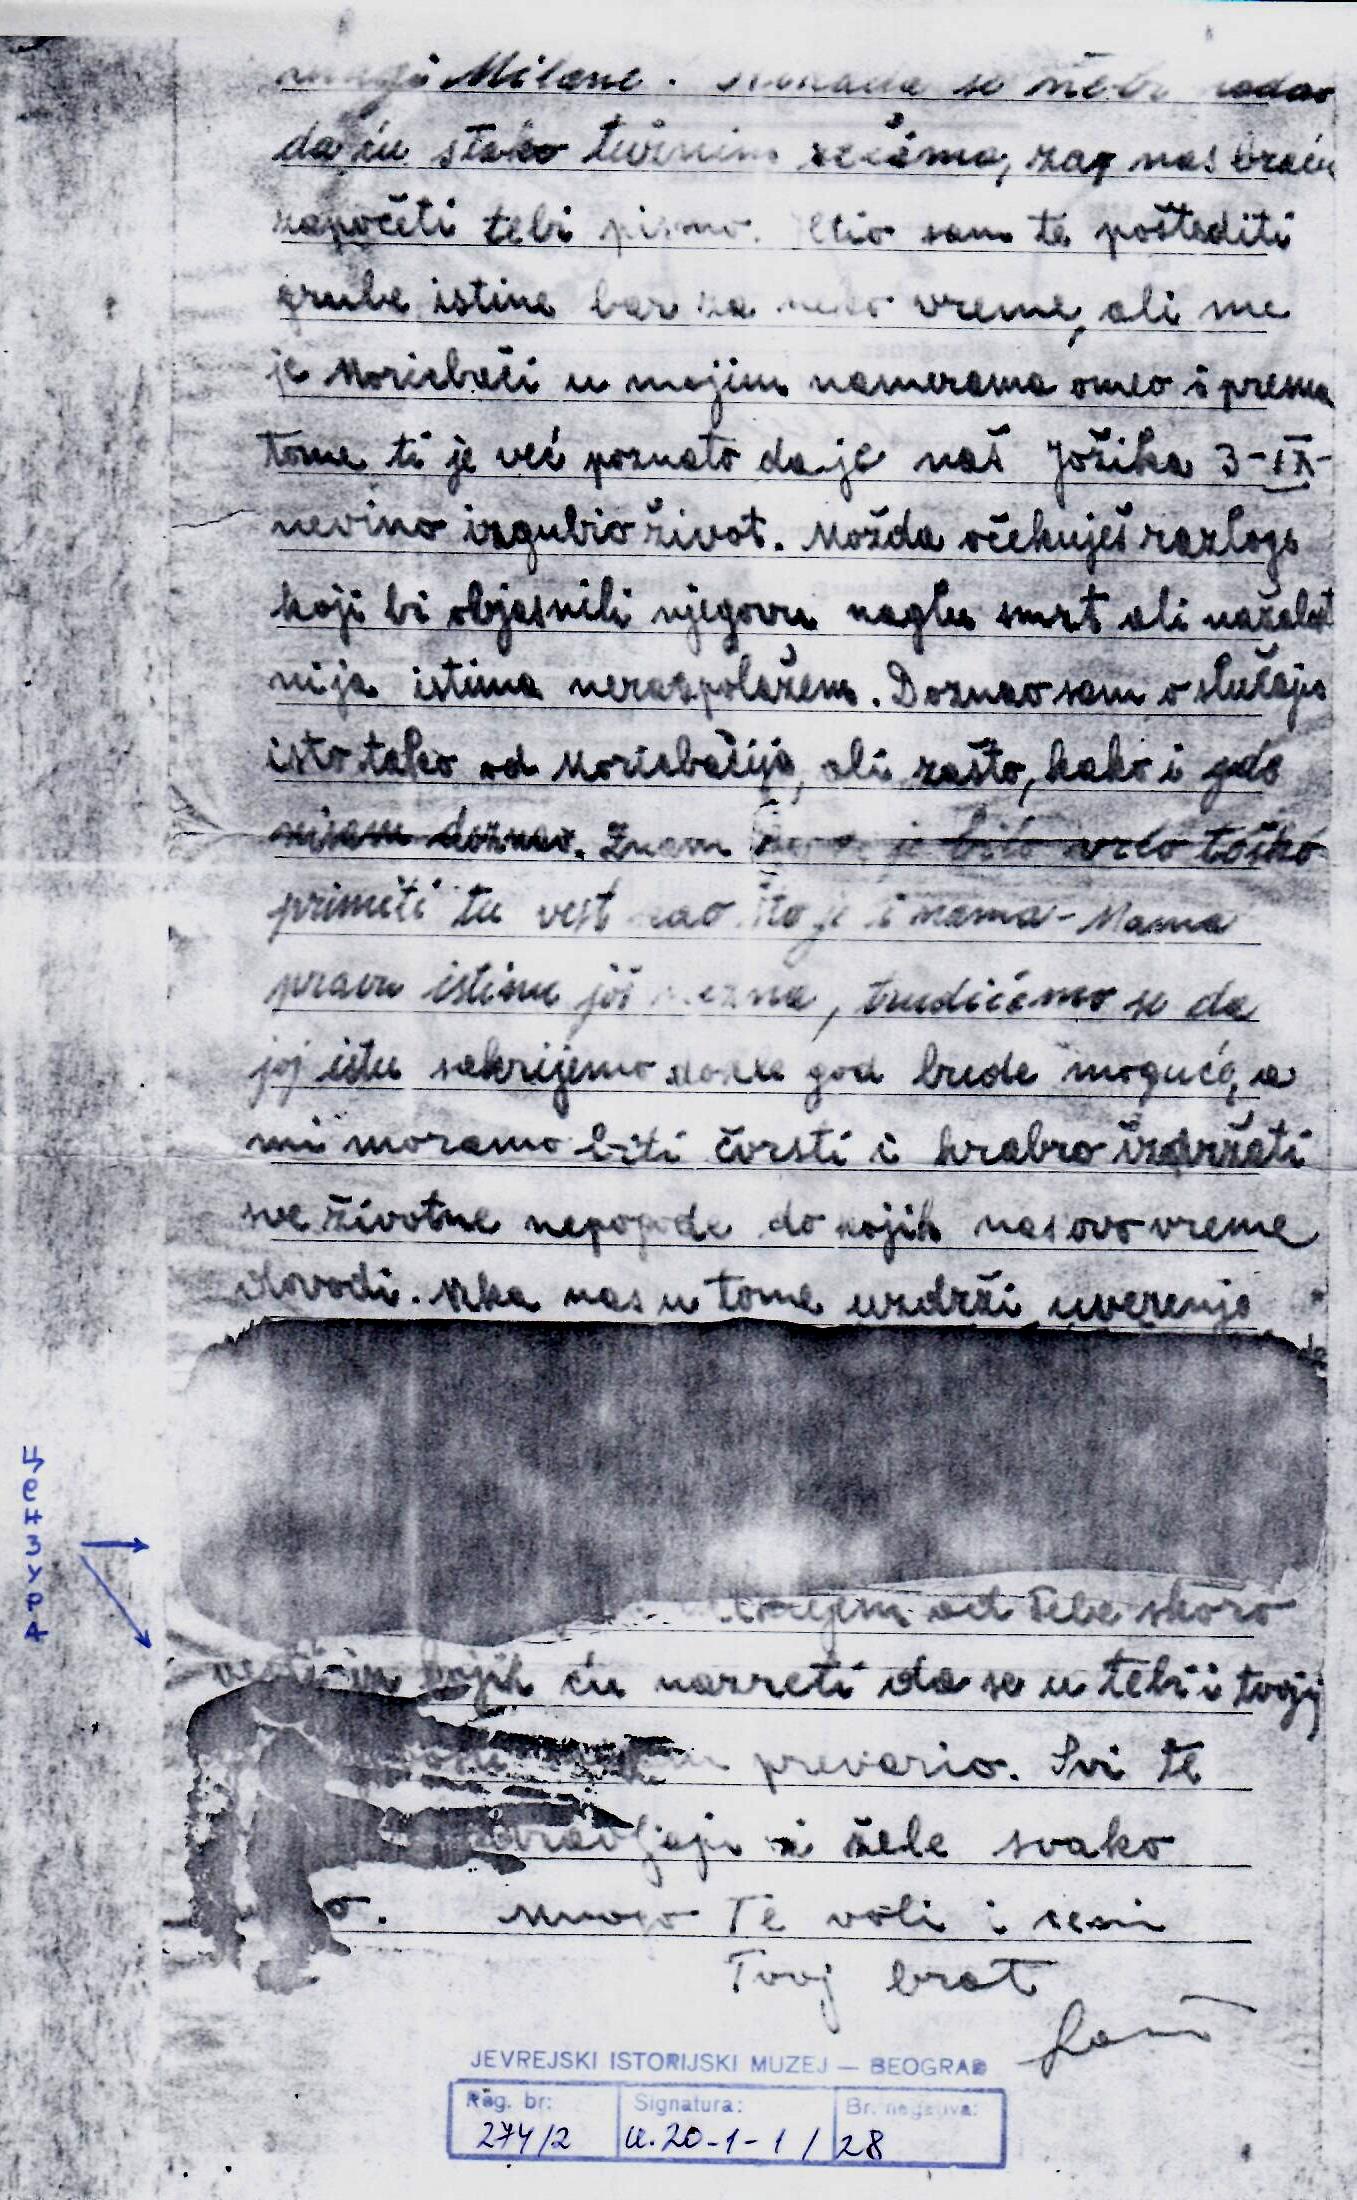 Milane. se nebi nadao
da ću sa tako tužnim rečima, za nas braću
započeti tebi pismo. Htio sam te poštediti
grube istine bar za neko vreme, ali me
je Moricbači u mojim namerama omeo i prema
tome ti je već poznato da je naš Jožika 3-IX-
nevino izgubio život. Možda očekuješ razloge
koji bi objasnili njegovu naglu smrt ali nažalost
ni ja istima neraspolažem. Doznao sam o slučaju
isto tako od Moricbačija, ali zašto, kako i gde
nisam doznao. Znam je bilo vrlo teško
primiti tu vest kao što je i nama - Mama
pravu istinu još nezna, trudićemo se da
joj istu sakrijemo dokle god bude moguće, a
mi moramo biti čvrsti i hrabro izdržati
sve životne nepogode do kojih nas ovo vreme
dovodi. Neka nas u tome uzdrži uverenje
od Tebe skoro
vesti iz kojih ću nazreti da se u tebi i tvojoj
prevario. Svi te
i žele svako
o. Mnogo Te voli i ceni
Tvoj brat
ЦЕНЗУРА
JEVREJSKI ISTORIJSKI MUZEJ — BEOGRAD
Reg. br: Signatura: Br. negativa:
274/2 k. 20-1-1/ 28